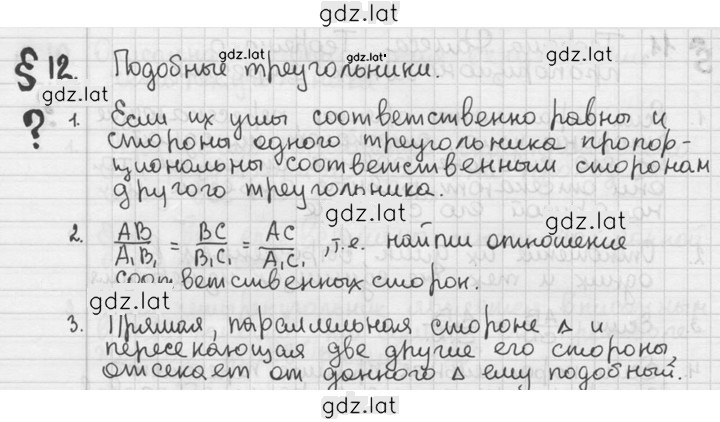 gdz.lat
§ 12. Подобные треугольники.
gdz.lat gdz.lat gdz.lat
gdz.lat
? 1. Если их углы соответственно равны и
стороны одного треугольника пропор-
циональны соответственным сторонам
другого треугольника.
gdz.lat
2. AB/A₁B₁ = BC/B₁C₁ = AC/A₁C₁, т.е. найти отношение
соответственных сторон.
gdz.lat
gdz.lat
3. Прямая, параллельная стороне ∆ и
пересекающая две другие его стороны,
отсекает от данного ∆ ему подобный.
gdz.lat